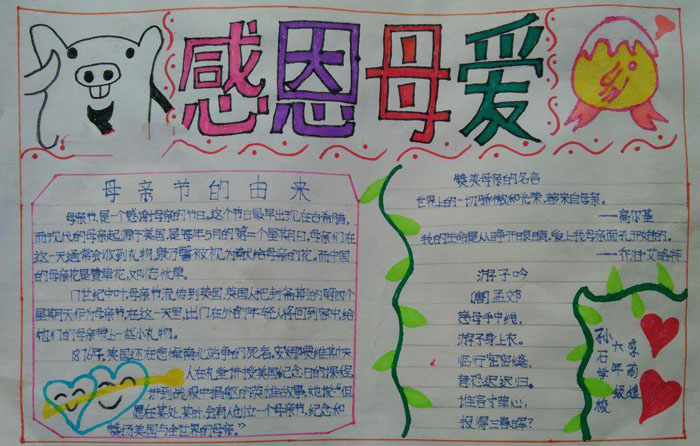 感恩母爱
母亲节的由来
母亲节,是一个感谢母亲的节日。这个节日最早出现在古希腊,
而现代的母亲起源于美国,是每年5月的第二个星期日。母亲们在
这一天通常会收到礼物,康乃馨被视为献给母亲的花。而中国
的母亲花是萱草花,又叫忘忧草。
17世纪中叶母亲节流传到英国,英国人把封斋期的第四个
星期天作为母亲节。在这一天里,出门在外的年轻人将回到家中,给
他们的母亲带上一些小礼物。
1876年,美国还在悲悼南北战争的死者。安娜·
人在礼堂讲授美国纪念日的课程,
讲到战役中捐躯的英雄故事,她说:“但
愿在某处、某时,会有人创立一个母亲节,纪念和
赞扬美国与全世界的母亲。”
赞美母亲的名言
世界上的一切骄傲和光荣,都来自母亲。
——高尔基
我的生命是从睁开眼睛,爱上我母亲面孔开始的。
——乔治·艾略特
游子吟
[唐]孟郊
慈母手中线,
游子身上衣。
临行密密缝,
意恐迟迟归。
谁言寸草心,
报得三春晖?
六年级
孙石学校